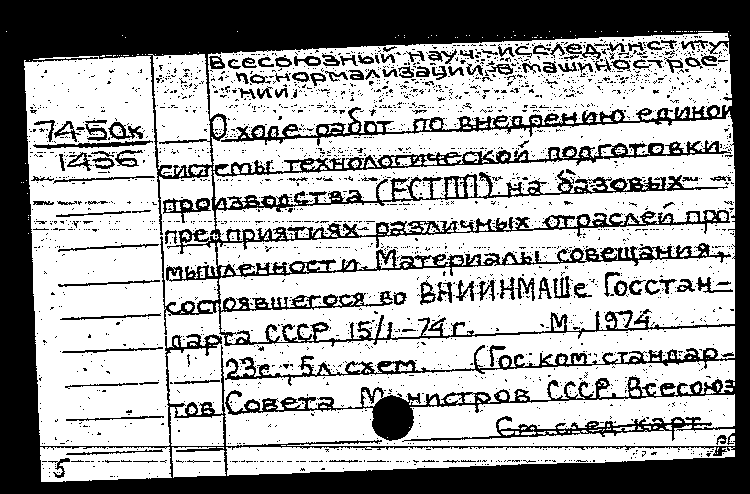 Всесоюзный науч.-исслед. институт
по нормализации в машинострое-
нии.
74-50к
1436
О ходе работ по внедрению единой
системы технологической подготовки
производства (ЕСТПП) на базовых
предприятиях различных отраслей про-
мышленности. Материалы совещания,
состоявшегося во ВНИИНМАШе Госстан-
дарта СССР, 15/I-74 г. М., 1974.
23с.; 5л. схем. (Гос. ком. стандар-
тов Совета Министров СССР. Всесоюз
См. след. карт.
5